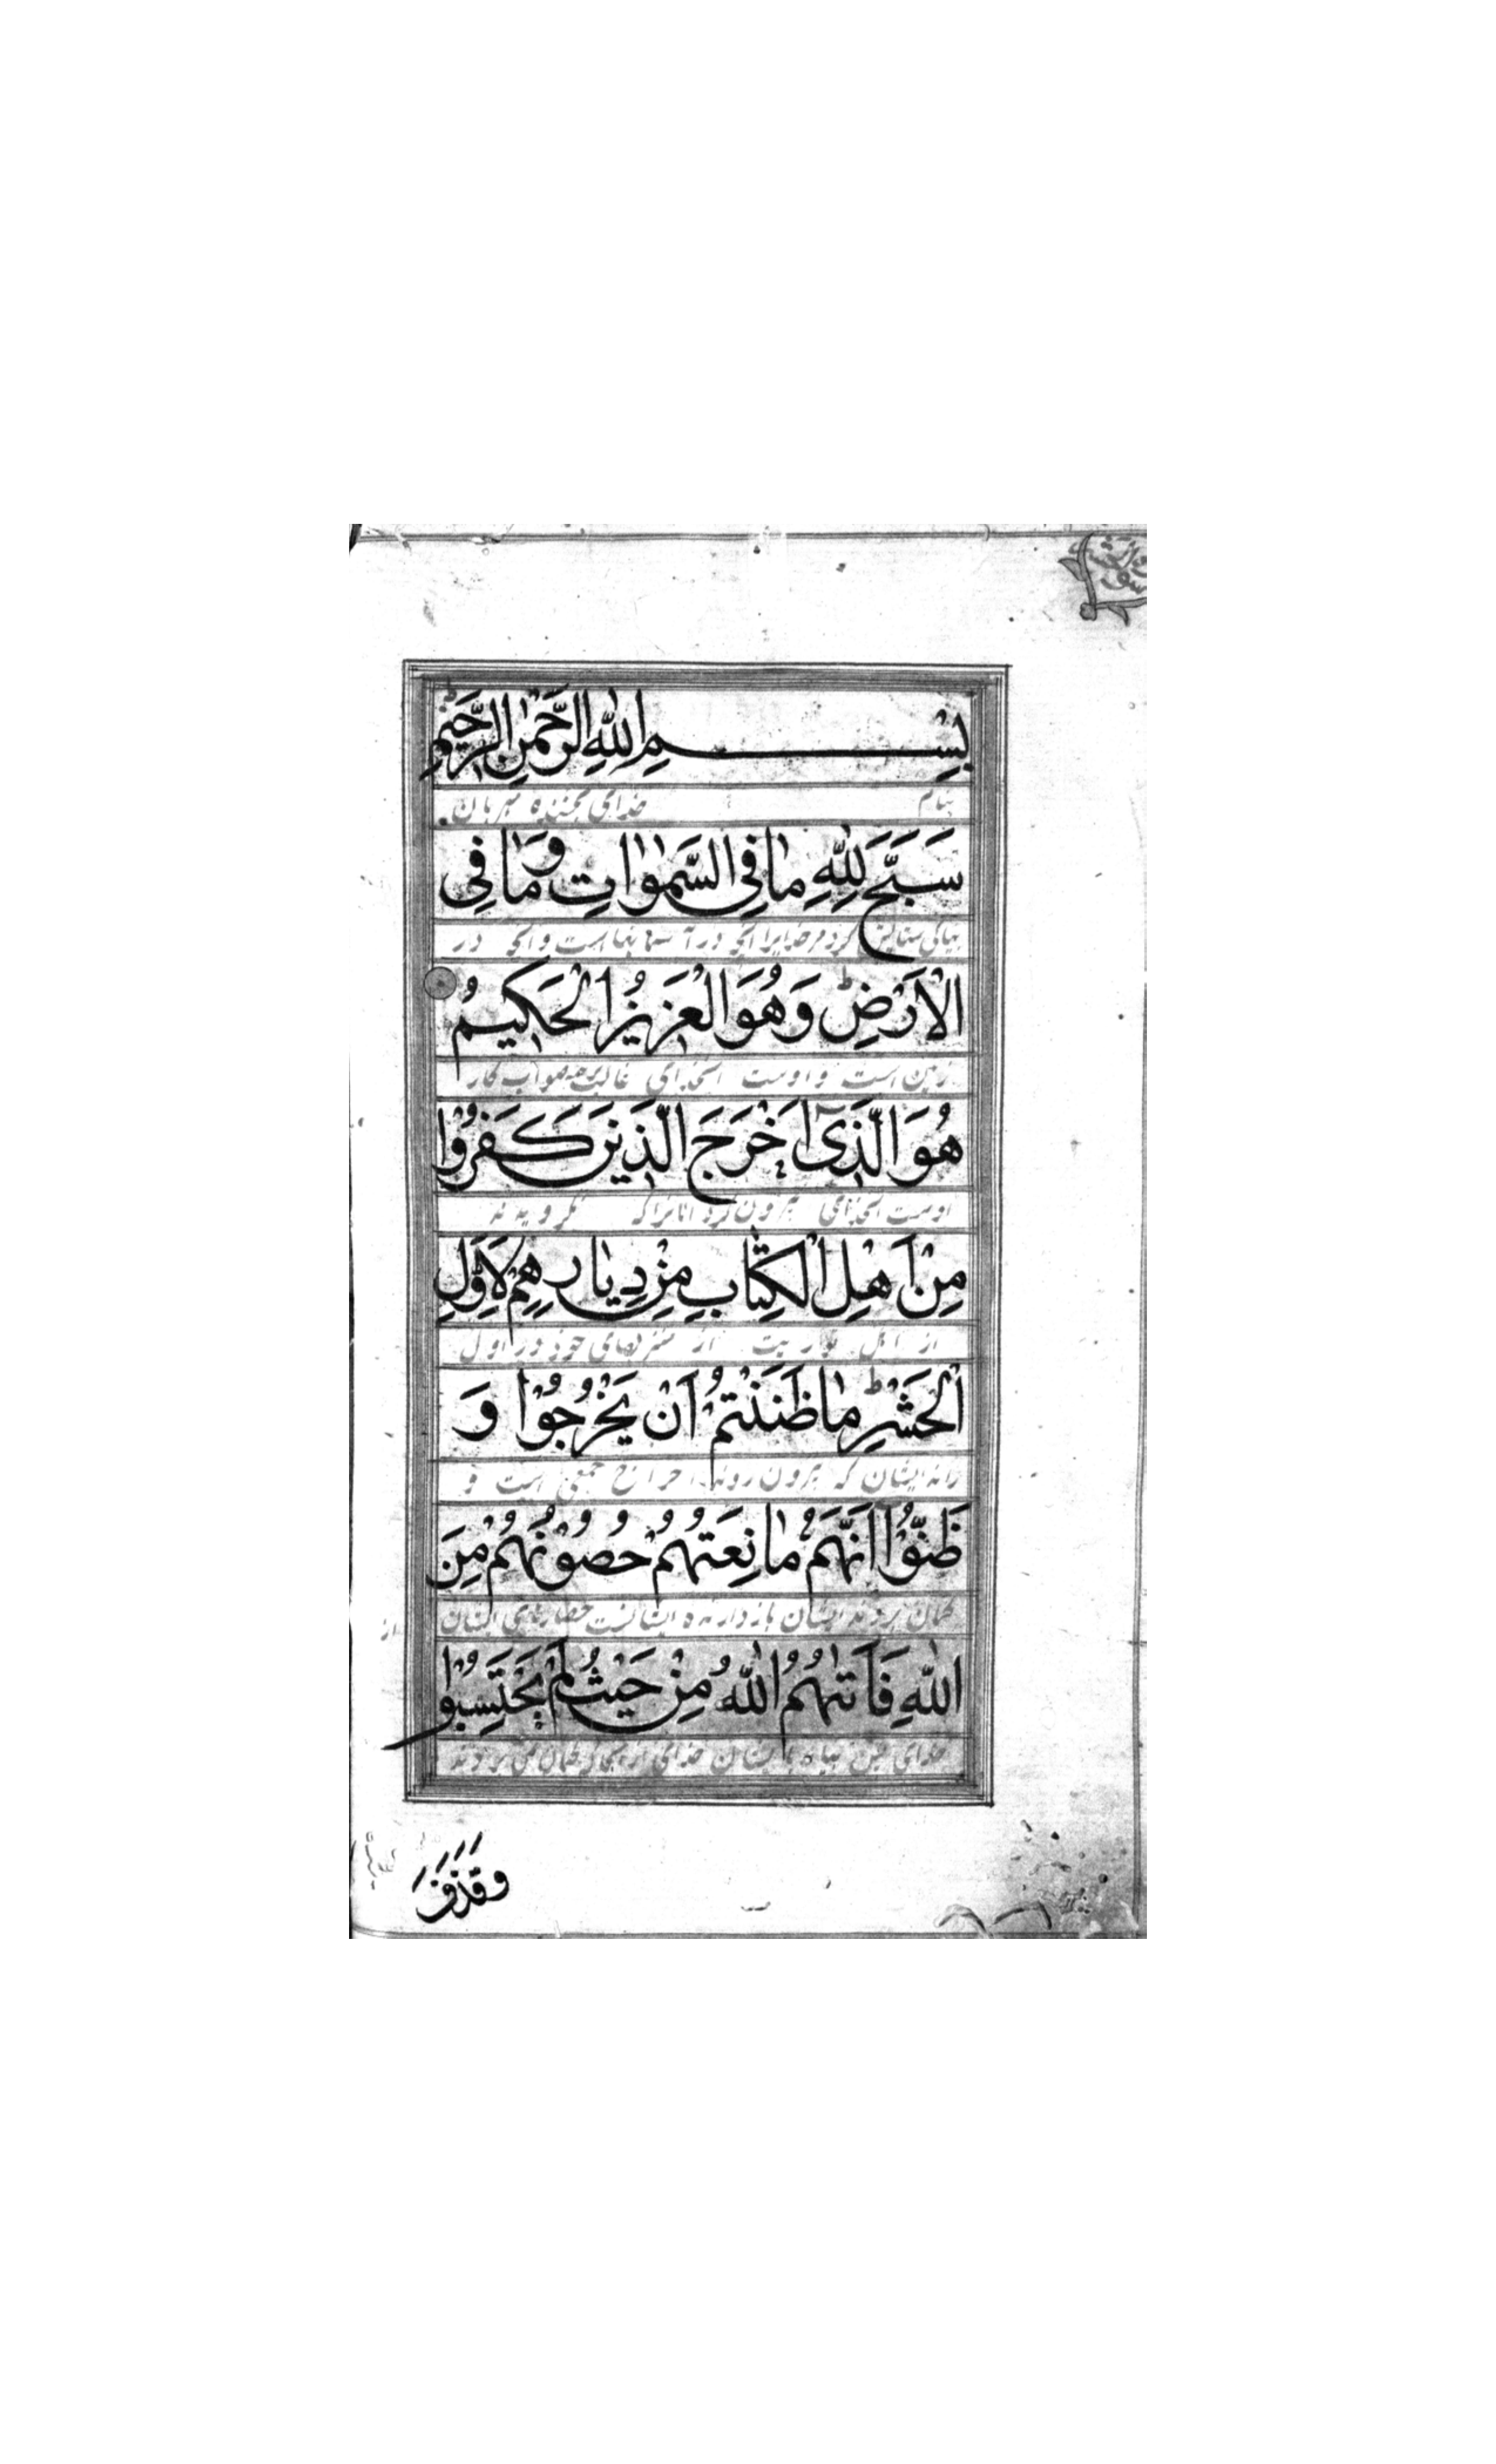 بِسْمِ اللهِ الرَّحْمٰنِ الرَّحِيْمِ
بنام خدای بخشنده مهربان
سَبَّحَ لِلّٰهِ مَا فِي السَّمٰوٰاتِ وَمَا فِي
بپاکی ستایش کرد مر خدایرا آنچه در آسمانها است و آنچه در
الْاَرْضِ ط وَهُوَ الْعَزِيْزُ الْحَكِيْمُ
زمین است و اوست آنخدای غالب صواب کار
هُوَ الَّذِىٓ اَخْرَجَ الَّذِيْنَ كَفَرُوْا
اوست آنخدای بیرون کرد آنانرا که نگرویدند
مِنْ اَهْلِ الْكِتَابِ مِنْ دِيَارِهِمْ لِاَوَّلِ
از اهل توریت از خود در اول
الْحَشْرِ ط مَا ظَنَنْتُمْ اَنْ يَخْرُجُوْا وَ
که بیرون روند است و
ظَنُّوْا اَنَّهُمْ مَانِعَتُهُمْ حُصُوْنُهُمْ مِنَ
گمان بردند ایشان باز دارنده حصارهای ایشان از
اللهِ فَاَتٰىهُمُ اللهُ مِنْ حَيْثُ لَمْ يَحْتَسِبُوْا
خدای بایشان خدای از گمان نمی بردند
وَقَذَفَ